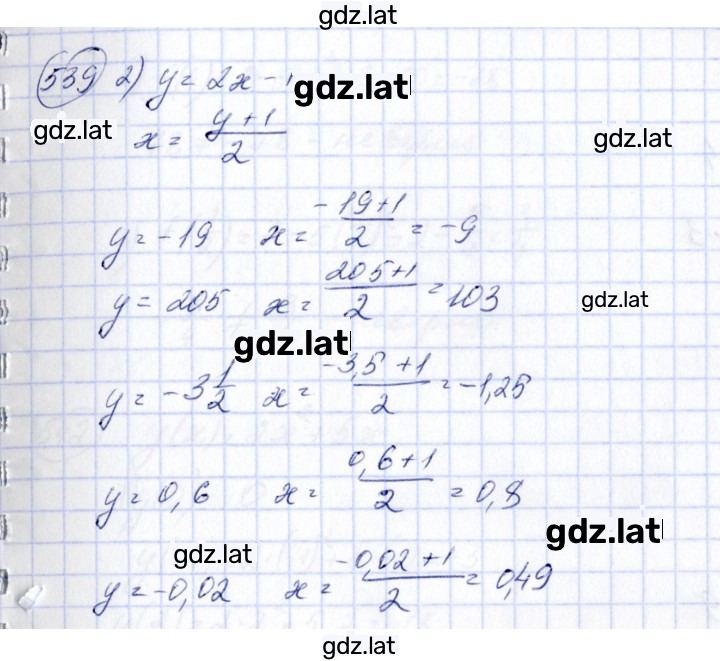 gdz.lat
539 2) y = 2x - 1
gdz.lat
gdz.lat
x = (y + 1)/2
gdz.lat
y = -19 x = (-19 + 1)/2 = -9
y = 205 x = (205 + 1)/2 = 103
gdz.lat
gdz.lat
y = -3 1/2 x = (-3,5 + 1)/2 = -1,25
y = 0,6 x = (0,6 + 1)/2 = 0,8
gdz.lat
gdz.lat
y = -0,02 x = (-0,02 + 1)/2 = 0,49
gdz.lat